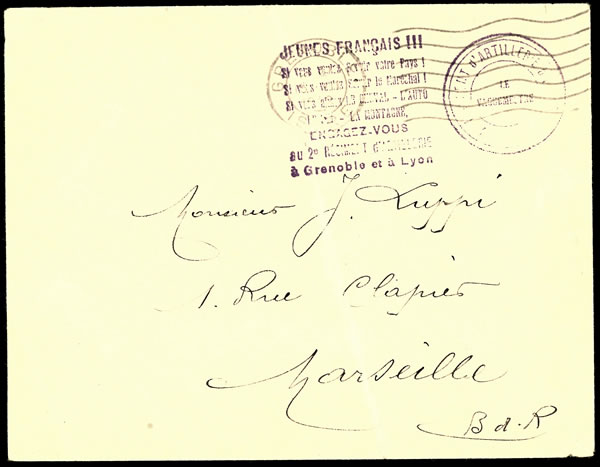 JEUNES FRANÇAIS !!!
Si vous voulez servir votre Pays !
Si vous voulez servir le Maréchal !
Si vous aimez LE CHEVAL - L'AUTO
LA MONTAGNE,
ENGAGEZ-VOUS
au 2e RÉGIMENT d'ARTILLERIE
à Grenoble et à Lyon
GRENOBLE
D'ARTILLERIE
LE
VAGUEMESTRE
Monsieur J. Luppi
1. Rue Clapier
Marseille
B d. R